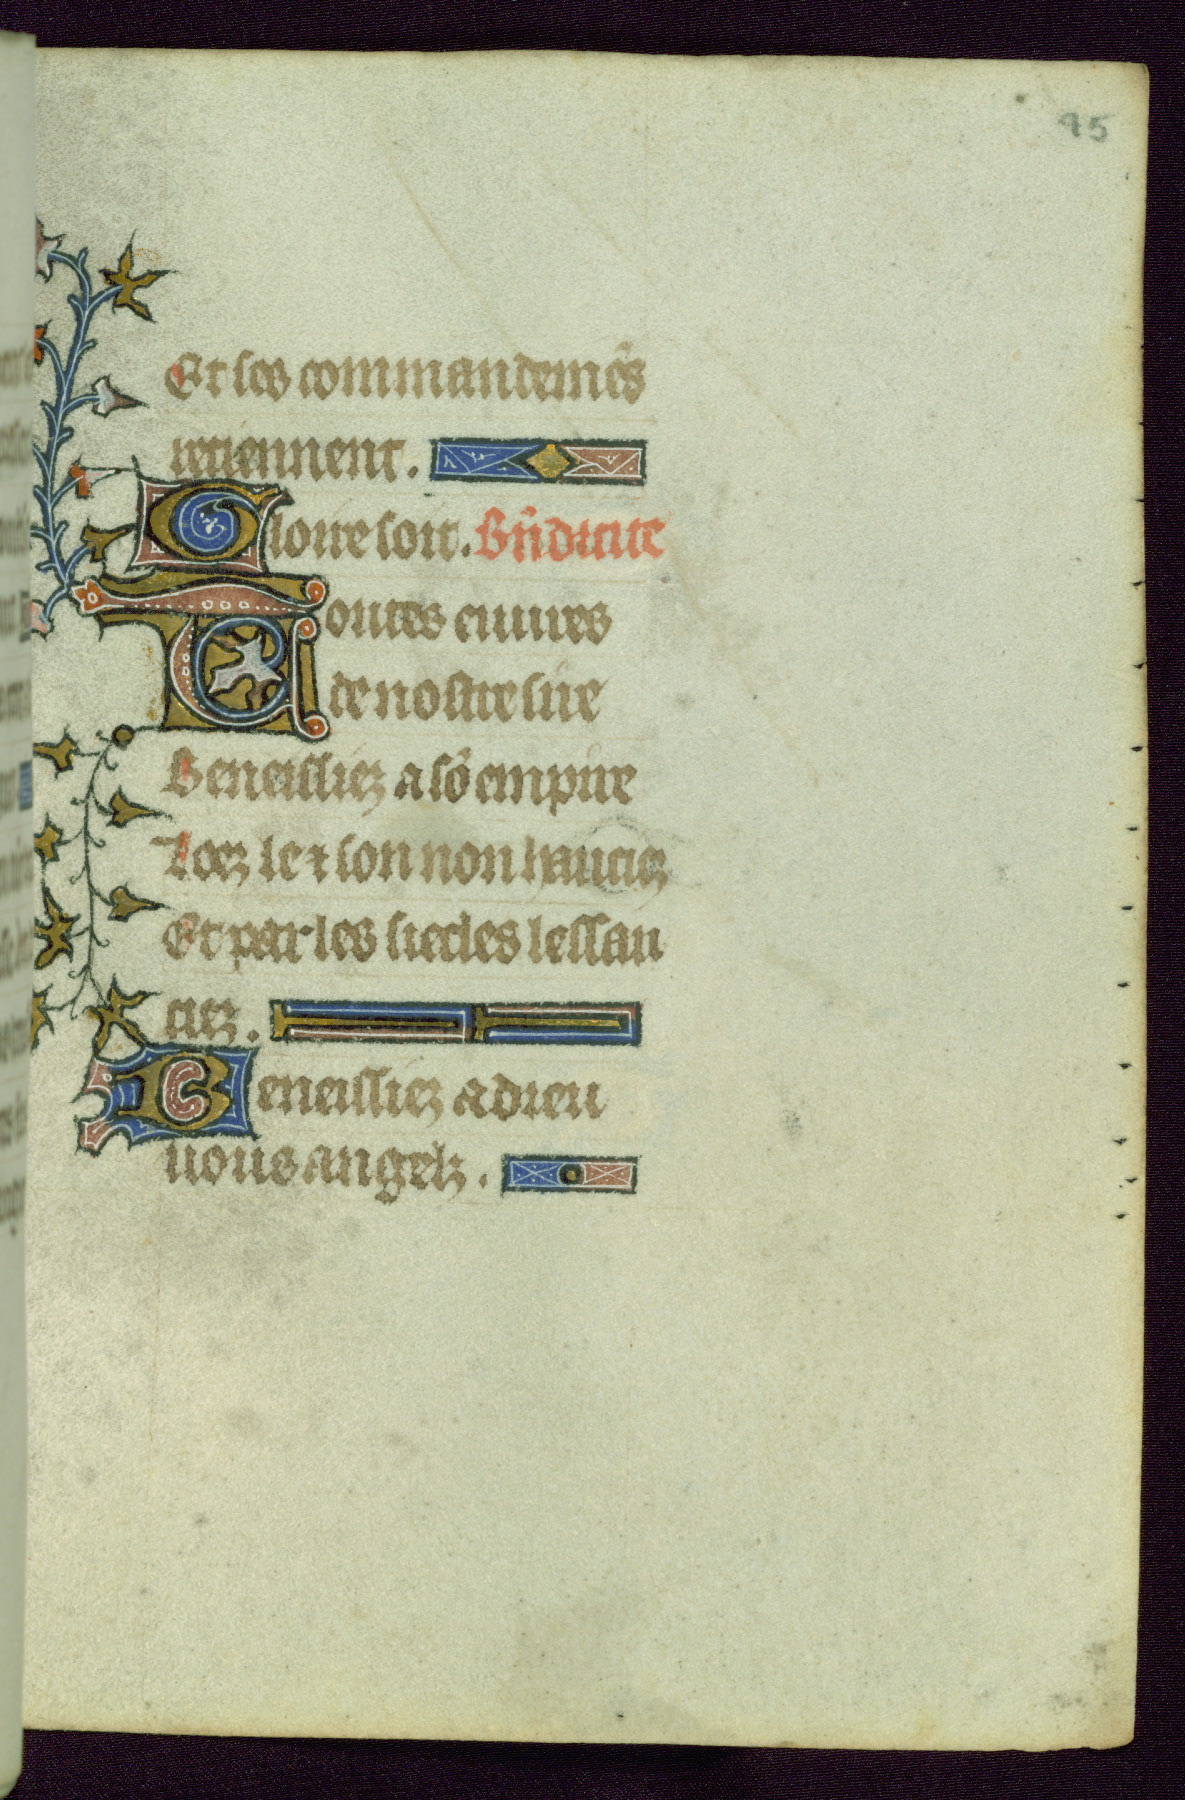 45
Et ses commandemēs
retiennent.
Gloire soit. Bn̄dicite
Toutes euures
de nostre sire
Beneissiez a sō empire
Loez le ⁊ son non hauciez
Et par les siecles lessau
ciez.
Beneissiez a dieu
uous angelz.